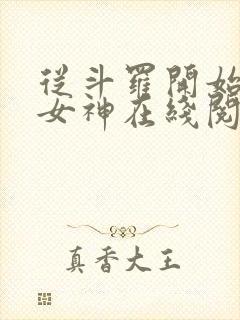 從斗羅開始
女神在綫閱
真香大王